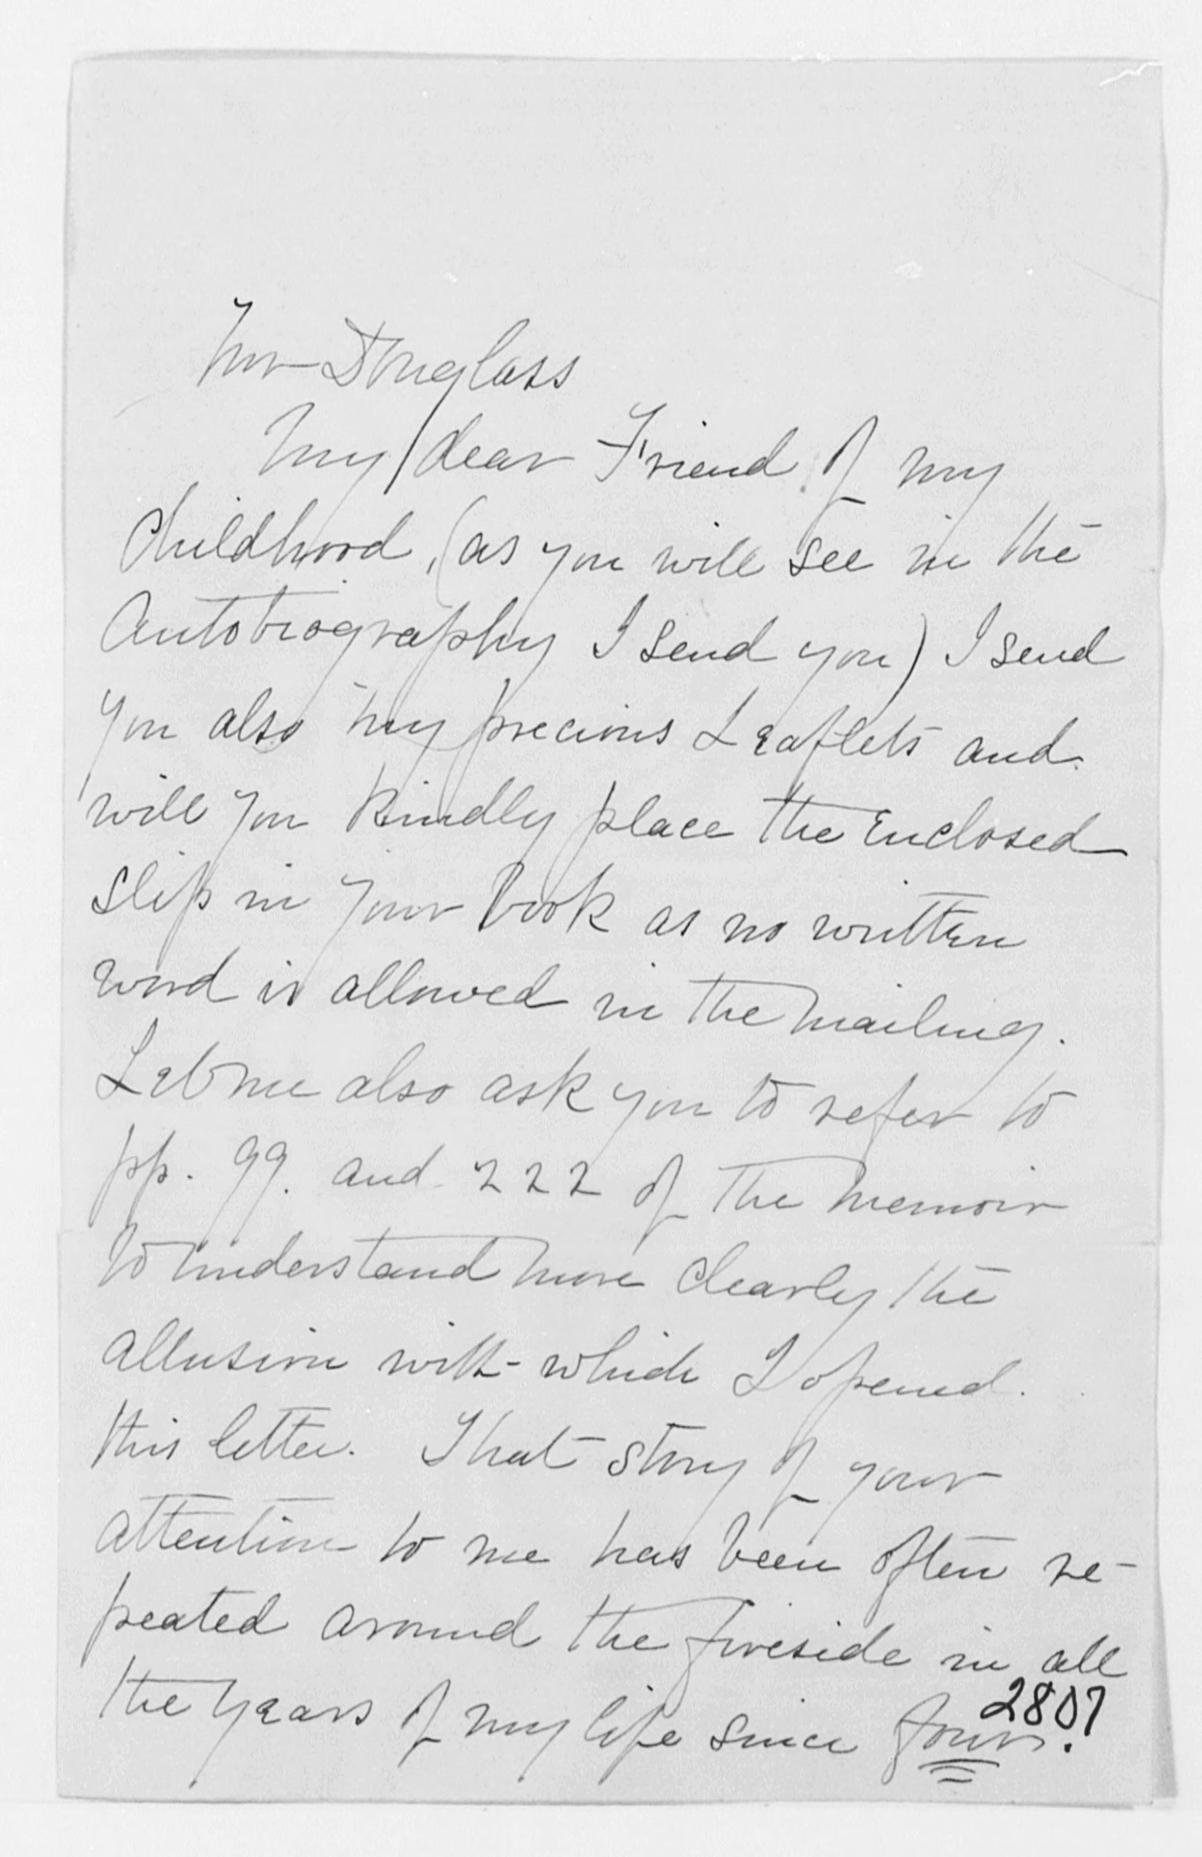 Mr Douglass
My dear Friend of my
Childhood, (as you will see in the
Autobiography I send you) I send
you also my precious Leaflets and
will you kindly place the enclosed
slip in your book as no written
word is allowed in the mailing.
Let me also ask you to refer to
pp. 99. and 222 of the Memoir
to understand more clearly the
allusion with which I opened
this letter. That story of your
attention to me has been often re-
peated around the fireside in all
the years of my life since four.
2807